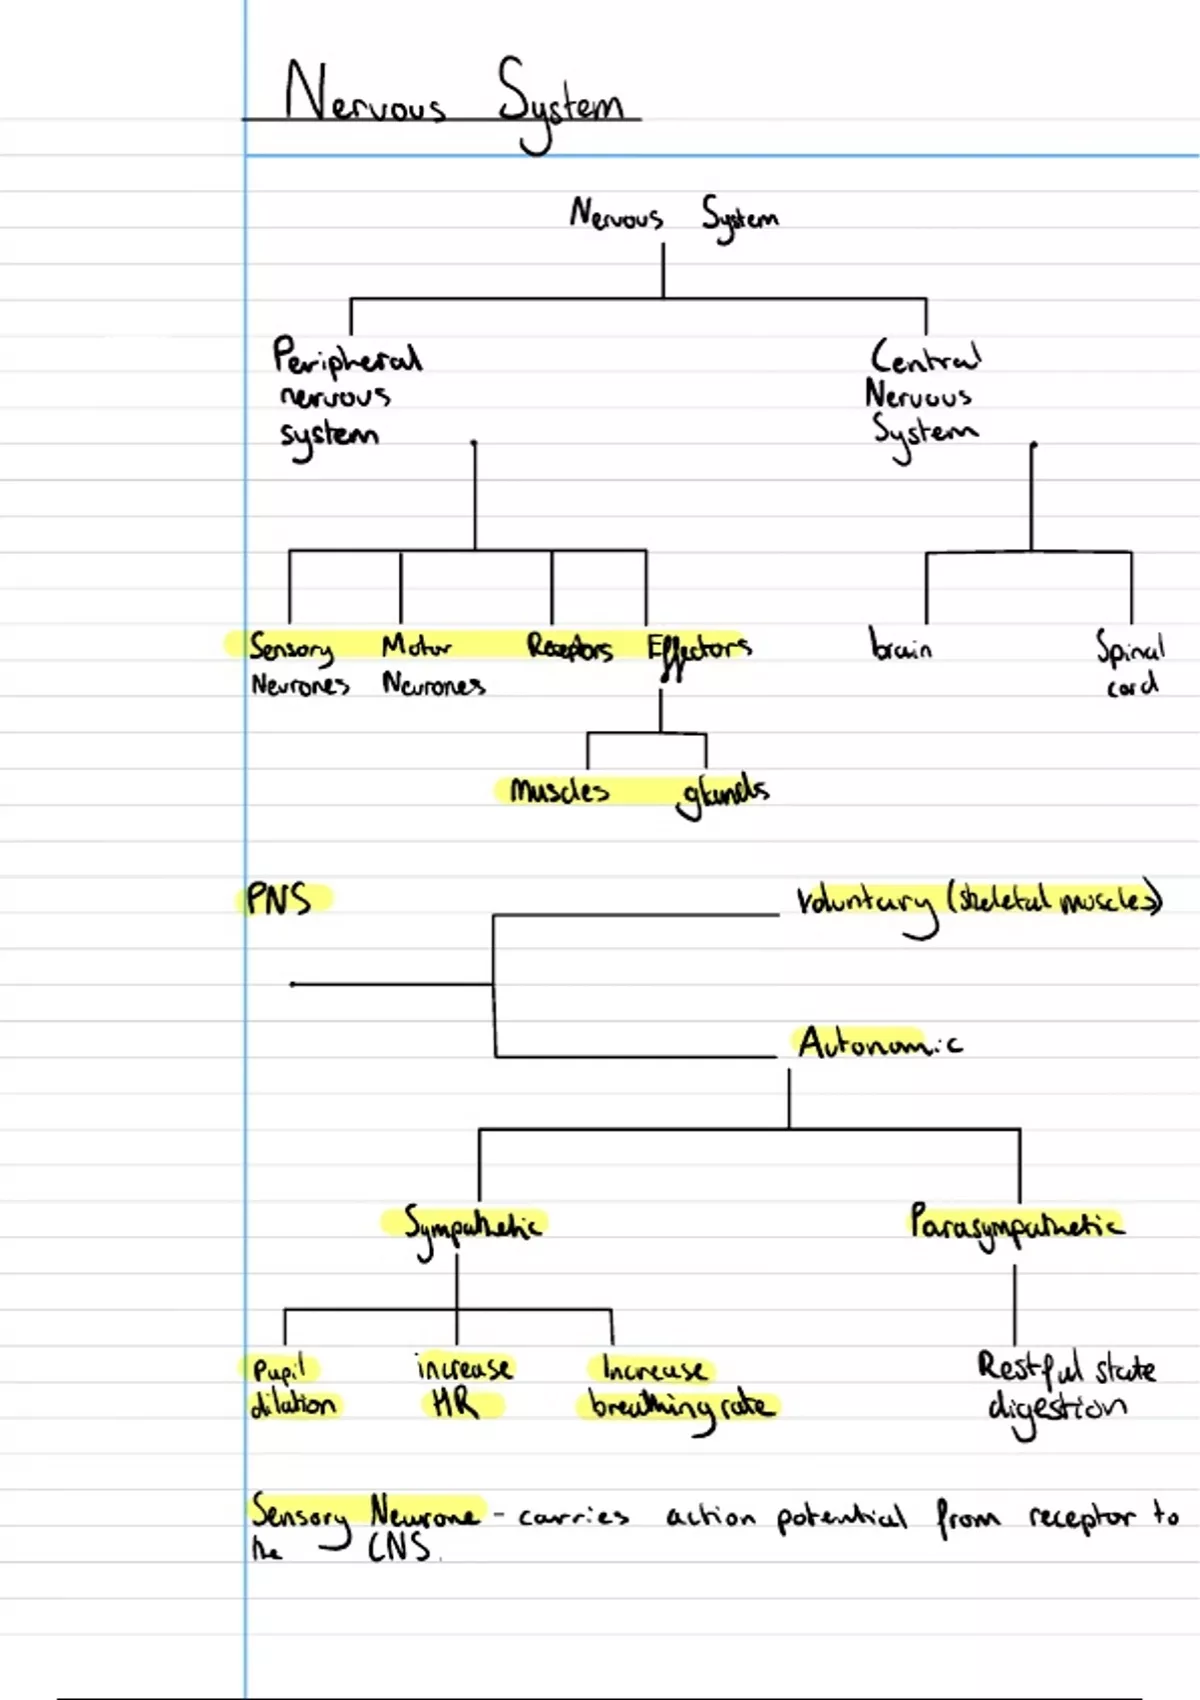 Nervous System
Nervous System
Peripheral
nervous
system
Central
Nervous
System
Sensory Motor Receptors Effectors brain Spinal
Neurones Neurones cord
muscles glands
PNS voluntary (skeletal muscles)
Autonomic
Sympathetic Parasympathetic
Pupil increase Increase Restful state
dilation HR breathing rate digestion
Sensory Neurone - carries action potential from receptor to
the CNS.